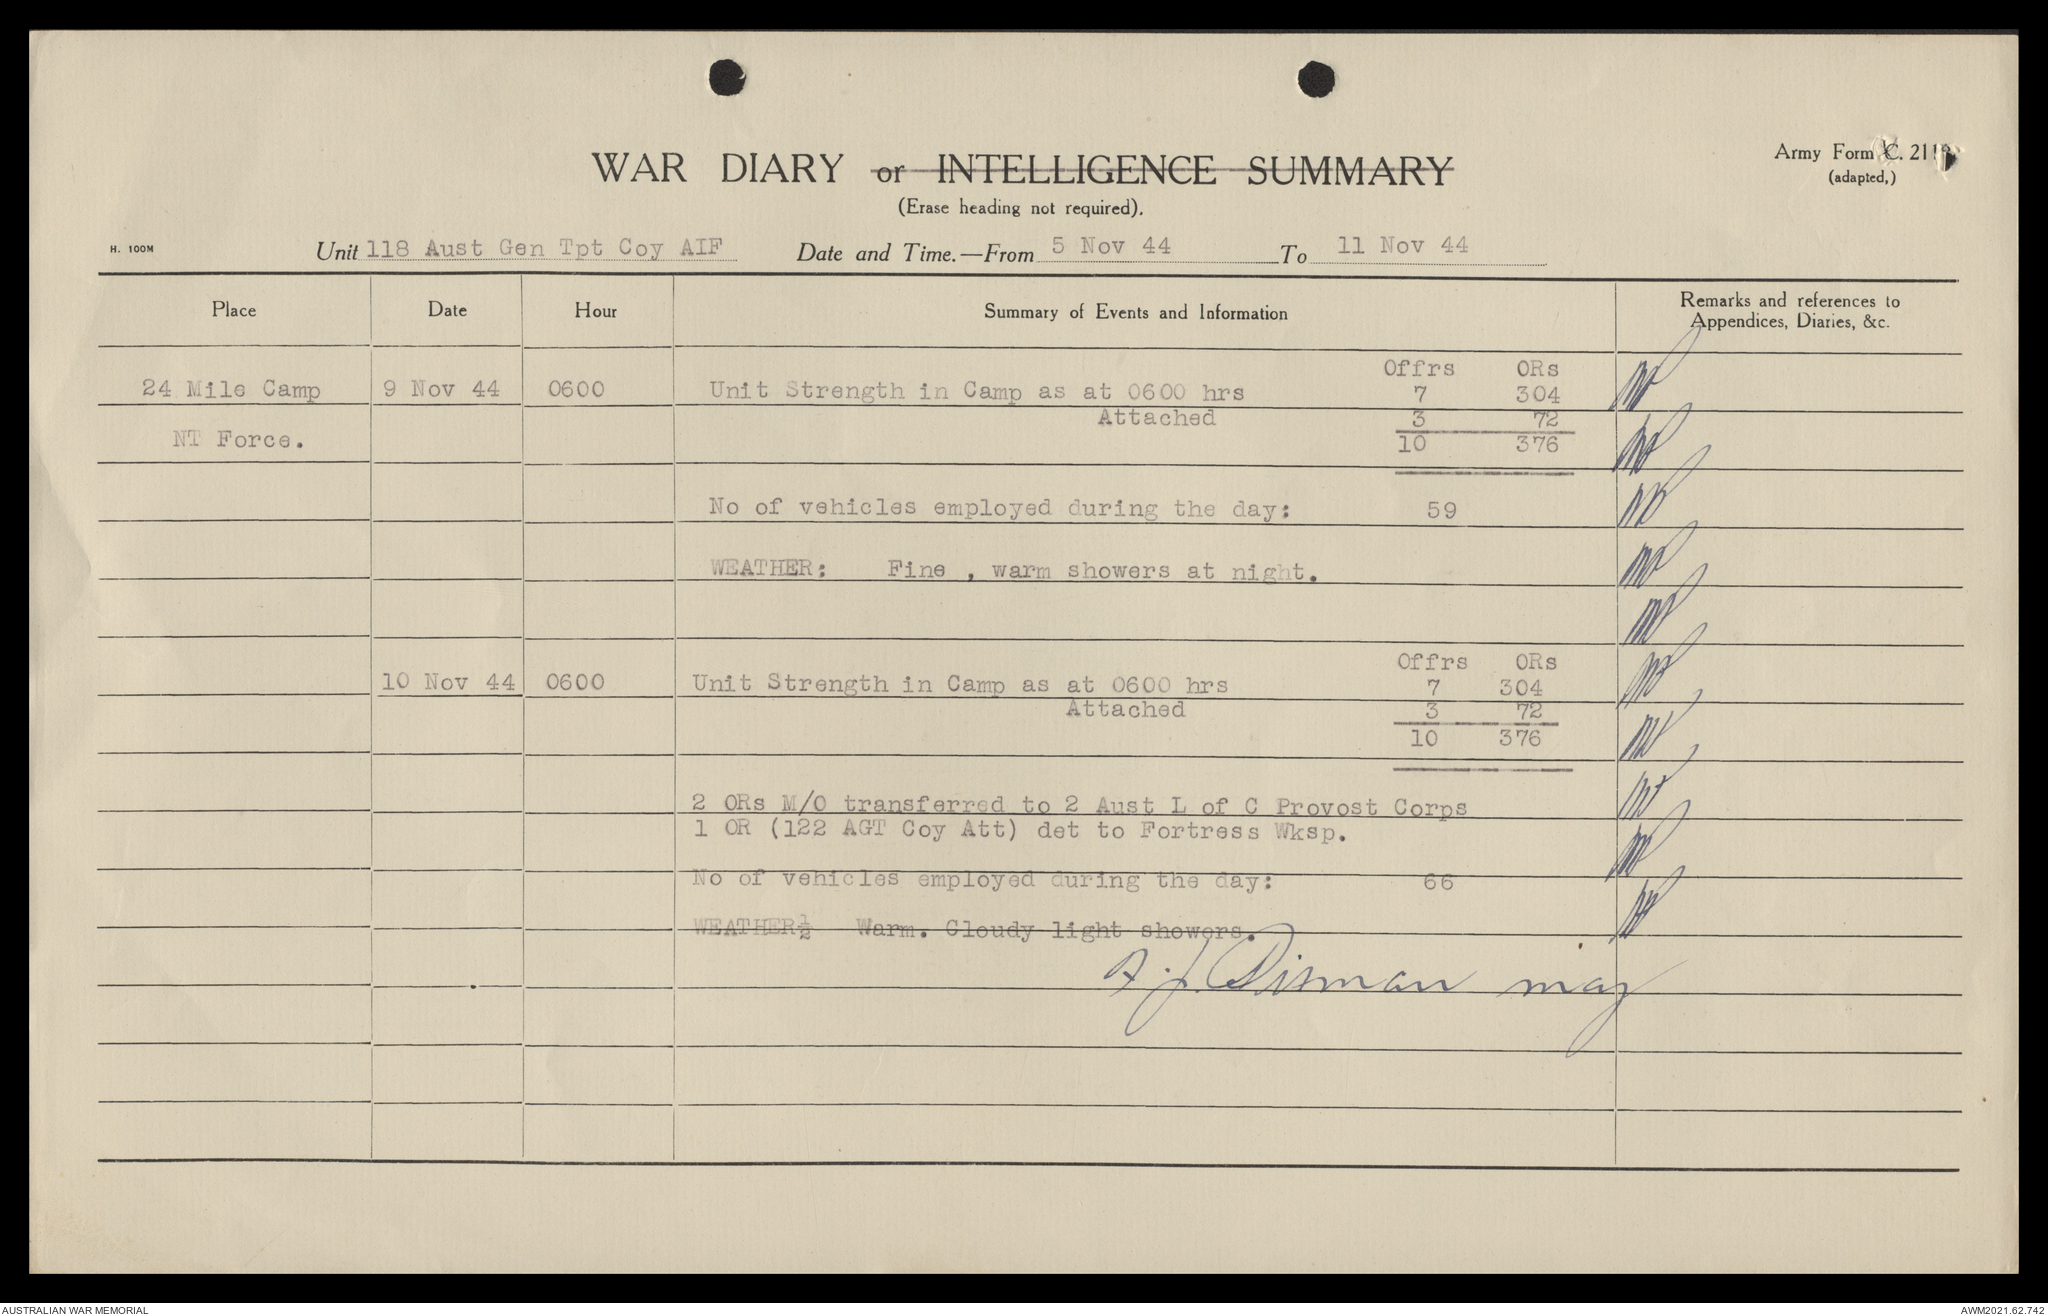 WAR DIARY or INTELLIGENCE SUMMARY
(Erase heading not required).
Army Form C. 211
(adapted,)
H. 100M
Unit 118 Aust Gen Tpt Coy AIF Date and Time.—From 5 Nov 44 To 11 Nov 44
Place Date Hour Summary of Events and Information Remarks and references to
Appendices, Diaries, &c.
Offrs ORs
24 Mile Camp 9 Nov 44 0600 Unit Strength in Camp as at 0600 hrs 7 304
Attached 3 72
NT Force. 10 376
No of vehicles employed during the day: 59
WEATHER: Fine , warm showers at night.
Offrs ORs
10 Nov 44 0600 Unit Strength in Camp as at 0600 hrs 7 304
Attached 3 72
10 376
2 ORs M/O transferred to 2 Aust L of C Provost Corps
1 OR (122 AGT Coy Att) det to Fortress Wksp.
No of vehicles employed during the day: 66
WEATHER½ Warm. Cloudy light showers.
maj
AUSTRALIAN WAR MEMORIAL
AWM2021.62.742